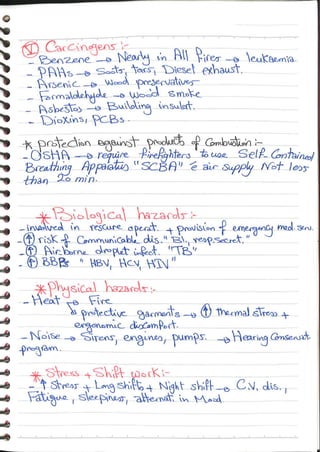 (V) Carcinogens :-
- Benzene → Nearly in All Fires → leukaemia
- PAHs → Soots, tars, Diesel exhaust.
- Arsenic → wood preservatives
- Formaldehyde → wood smoke
- Asbestos → Building insulat.
- Dioxins, PCBs.
* protection against products of Combustion :-
- OSHA → require firefighters to use Self-Contained
Breathing Apparatus "SCBA" c̄ air supply Not less
than 20 min.
* Biological hazards :-
- involved in rescue operat. + provision of emergency med. serv.
- ↑ risk of Communicable dis. "Bl., resp. secret."
- ↑ Air borne droplet infect. "TB"
- ↑ BBPs "HBV, HCV, HIV"
* Physical hazards :-
- Heat → Fire
→ protective garments → ↑ thermal stress +
ergonomic discomfort.
- Noise → Sirens, engines, pumps. → Hearing Conservat.
program.
* Stress + Shift work :-
- ↑ Stress + Long Shifts + Night shift → C.V. dis.,
Fatigue, Sleepiness, alternat. in Mood